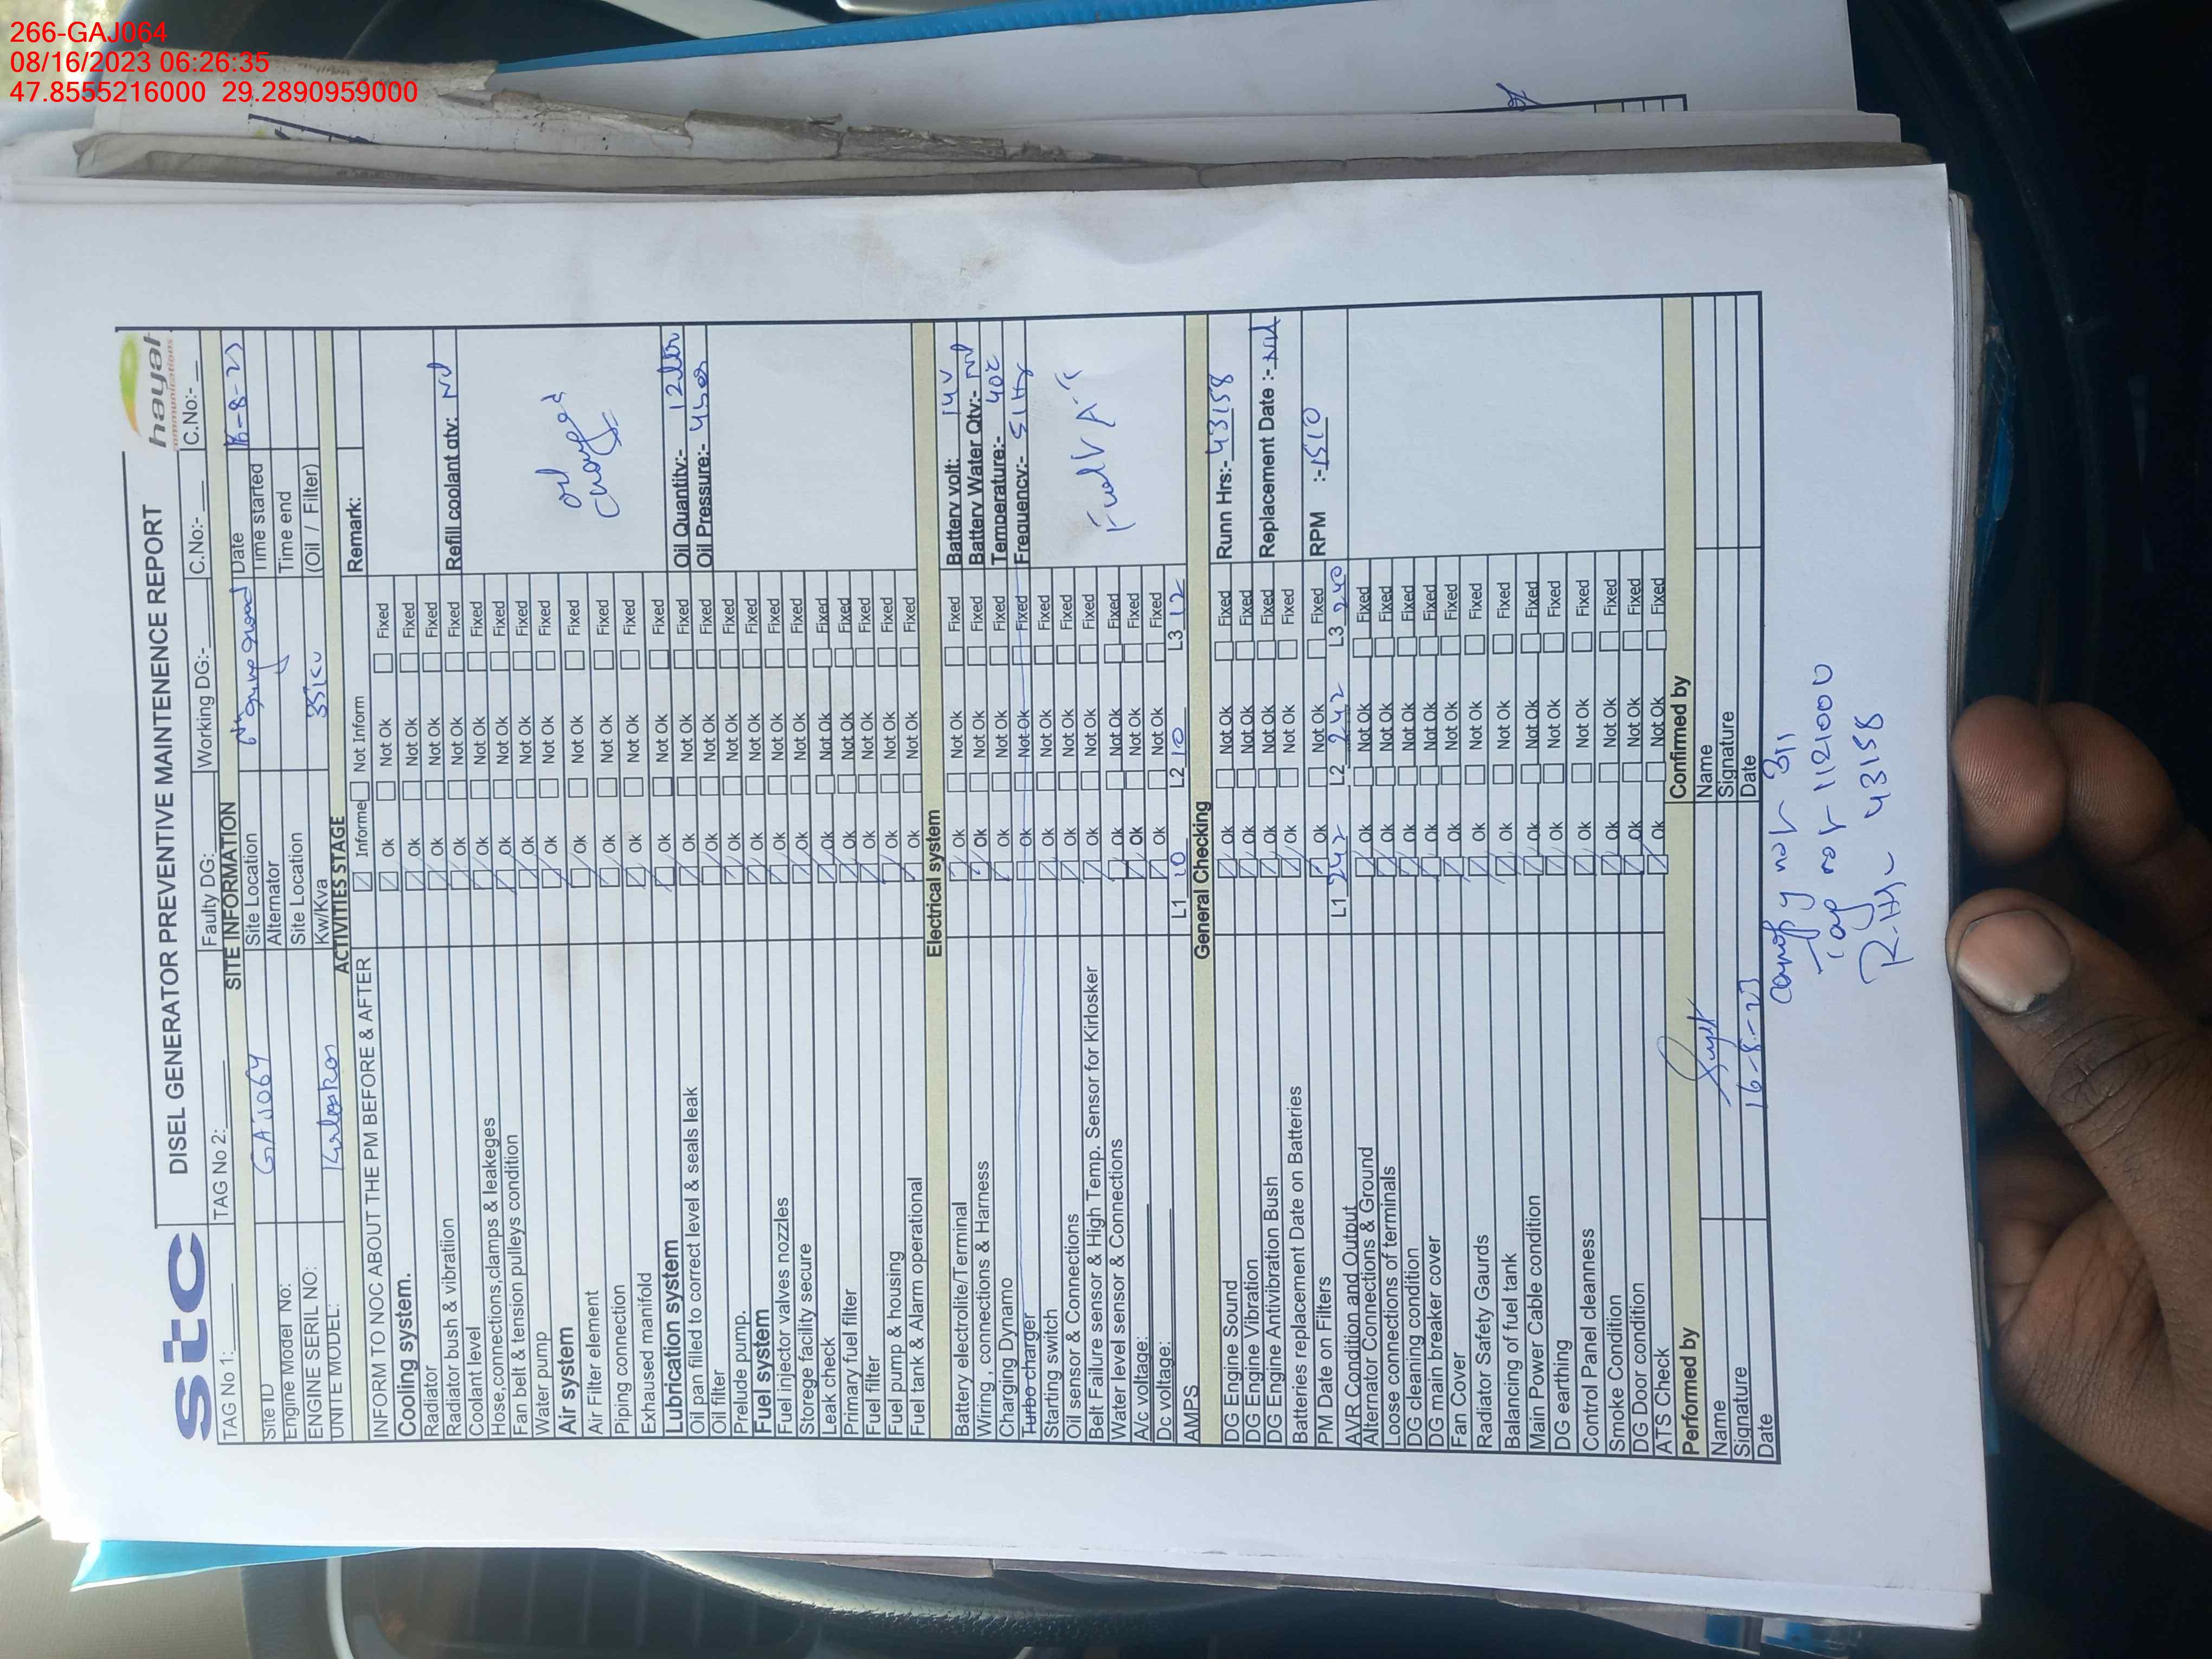 266-GAJ064
08/16/2023 06:26:35
47.8555216000 29.2890959000
stc
DISEL GENERATOR PREVENTIVE MAINTENENCE REPORT
hayat
communications
TAG No 1: TAG No 2: Faulty DG: Working DG:- C.No:- C.No:-
SITE INFORMATION
Site ID GAJ064 Site Location 6th Date -8-23
Engine Model No: Alternator Time started
ENGINE SERIL NO: Site Location Time end
UNITE MODEL: Kw/Kva (Oil / Filter)
ACTIVITIES STAGE
INFORM TO NOC ABOUT THE PM BEFORE & AFTER Informe Not Inform Remark:
Cooling system. Ok Not Ok Fixed
Radiator Ok Not Ok Fixed
Radiator bush & vibratiion Ok Not Ok Fixed Refill coolant qty: Nil
Coolant level Ok Not Ok Fixed
Hose,connections,clamps & leakeges Ok Not Ok Fixed
Fan belt & tension pulleys condition Ok Not Ok Fixed
Water pump Ok Not Ok Fixed
Air system Ok Not Ok Fixed
Air Filter element Ok Not Ok Fixed
Piping connection Ok Not Ok Fixed
Exhaused manifold Ok Not Ok Fixed
oil
changed
Lubrication system Ok Not Ok Fixed
Oil pan filled to correct level & seals leak Ok Not Ok Fixed Oil Quantity:- 12 ltr
Oil filter Ok Not Ok Fixed Oil Pressure:-
Prelude pump. Ok Not Ok Fixed
Fuel system Ok Not Ok Fixed
Fuel injector valves nozzles Ok Not Ok Fixed
Storege facility secure Ok Not Ok Fixed
Leak check Ok Not Ok Fixed
Primary fuel filter Ok Not Ok Fixed
Fuel filter Ok Not Ok Fixed
Fuel pump & housing Ok Not Ok Fixed
Fuel tank & Alarm operational Ok Not Ok Fixed
Electrical system
Battery electrolite/Terminal Ok Not Ok Fixed Battery volt: 14V
Wiring , connections & Harness Ok Not Ok Fixed Battery Water Qty:- Nil
Charging Dynamo Ok Not Ok Fixed Temperature:- 40c
Turbo charger Ok Not Ok Fixed Frequency:- 51Hz
Starting switch Ok Not Ok Fixed
Oil sensor & Connections Ok Not Ok Fixed
Belt Failure sensor & High Temp. Sensor for Kirlosker Ok Not Ok Fixed
Water level sensor & Connections Ok Not Ok Fixed
A/c voltage: Ok Not Ok Fixed
Dc voltage: Ok Not Ok Fixed
Fuel
AMPS L1 10 L2 10 L3 12
General Checking
DG Engine Sound Ok Not Ok Fixed Runn Hrs:- 43158
DG Engine Vibration Ok Not Ok Fixed
DG Engine Antivibration Bush Ok Not Ok Fixed Replacement Date :- Nil
Batteries replacement Date on Batteries Ok Not Ok Fixed
PM Date on Filters Ok Not Ok Fixed RPM :- 1510
AVR Condition and Output L1 242 L2 242 L3 240
Alternator Connections & Ground Ok Not Ok Fixed
Loose connections of terminals Ok Not Ok Fixed
DG cleaning condition Ok Not Ok Fixed
DG main breaker cover Ok Not Ok Fixed
Fan Cover Ok Not Ok Fixed
Radiator Safety Gaurds Ok Not Ok Fixed
Balancing of fuel tank Ok Not Ok Fixed
Main Power Cable condition Ok Not Ok Fixed
DG earthing Ok Not Ok Fixed
Control Panel cleanness Ok Not Ok Fixed
Smoke Condition Ok Not Ok Fixed
DG Door condition Ok Not Ok Fixed
ATS Check Ok Not Ok Fixed
Performed by Confirmed by
Name Name
Signature Signature
Date 16-8-23 Date
canopy
43158